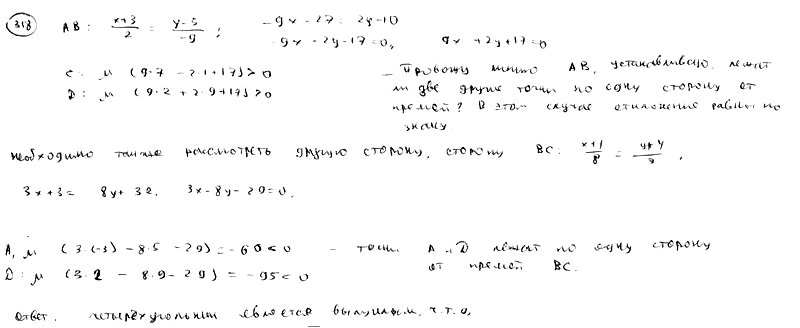 318 AB: x+3/2 = y-5/-9; -9x-27 = 2y-10
-9x-2y-17=0, 9x+2y+17=0
C: μ (9·7 - 2·1+17)>0
D: μ (9·2 + 2·9+17)>0
- Провожу линию AB, устанавливаю, лежат
ли две другие точки по одну сторону от
прямой? В этом случае отклонения равны по
знаку.
Необходимо также рассмотреть другую сторону, сторону BC: x+1/8 = y+4/3,
3x+3 = 8y+32. 3x-8y-29=0.
A: μ (3·(-3) - 8·5 - 29) = -60<0 - точки A и D лежат по одну сторону
от прямой BC.
D: μ (3·2 - 8·9 - 29) = -95<0
Ответ. четырёхугольник является выпуклым, ч.т.д.